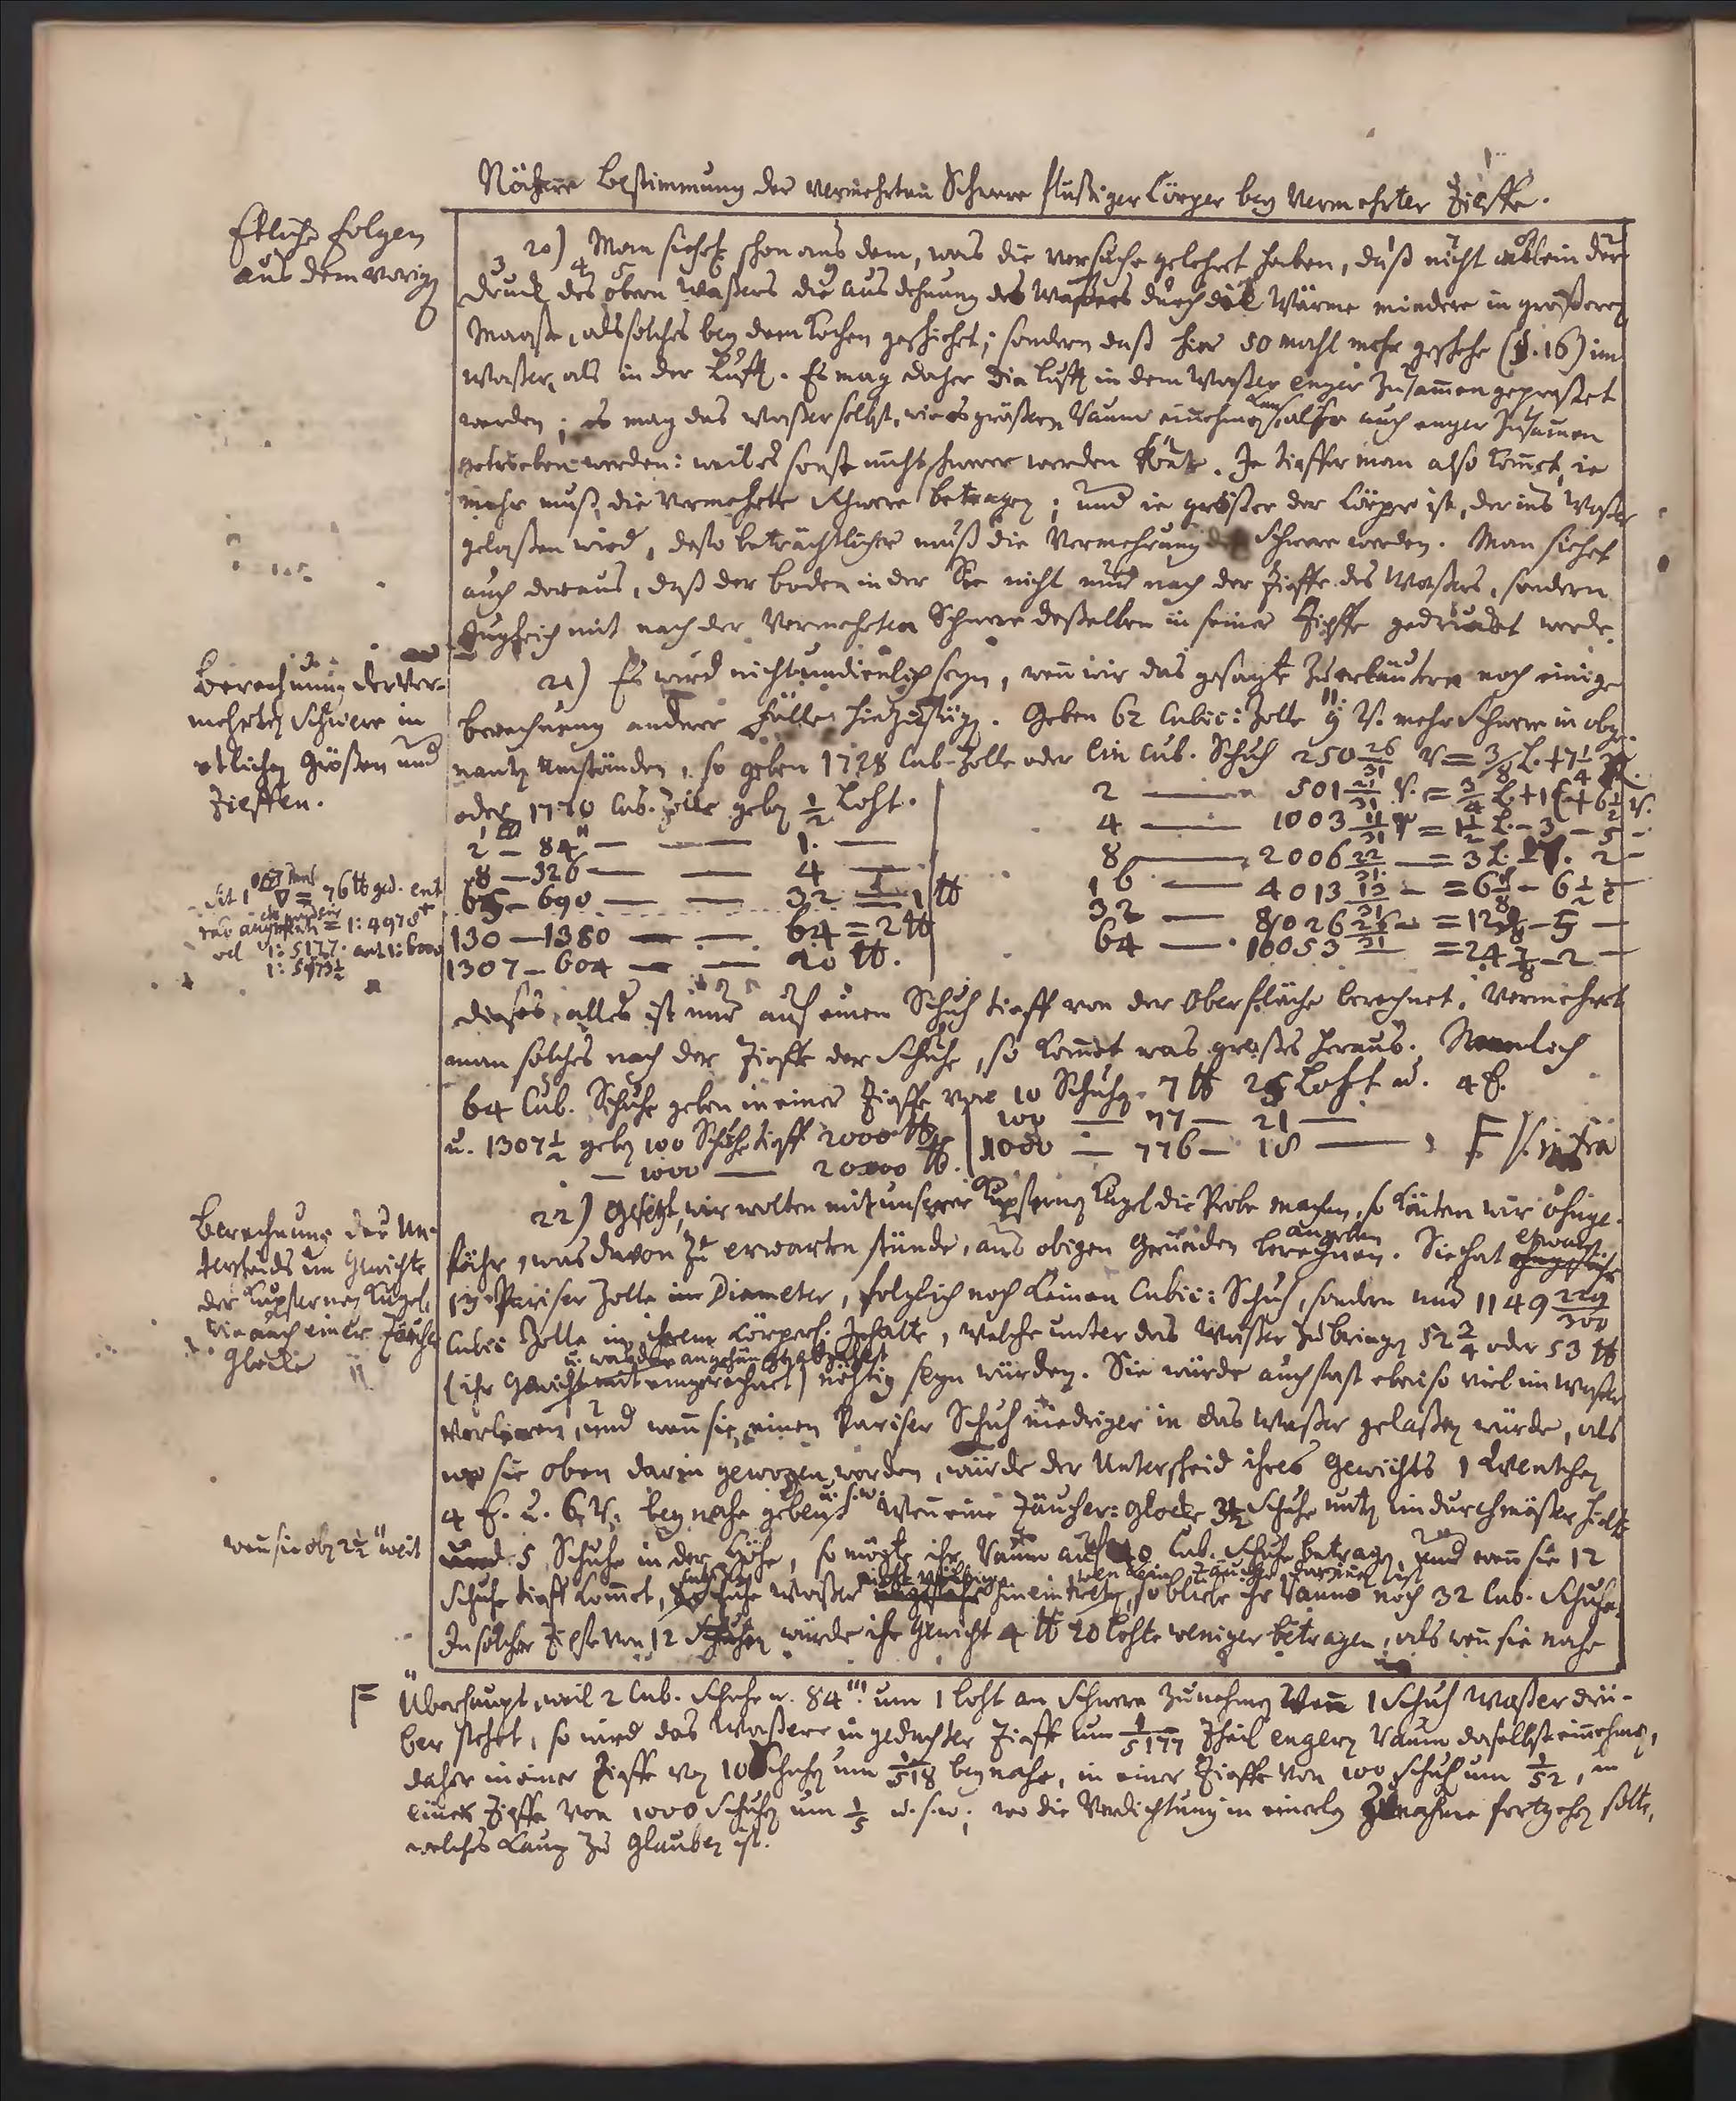 Nähere Bestimmung der vermehrten Schwere flüßiger Cörper bey vermehrter Tieffe.
Etliche Folgen
aus dem vorigen
20) Man siehet schon aus dem, was die Versuche gelehret haben, daß nicht allein der
Druck des obern Waßers die Ausdehnung des Waßers durch die Wärme mindere in größerer
Maaße, als solches bey dem Kochen geschiehet; sondern daß hier 50 mahl mehr geschehe (§. 16) im
Waßer, als in der Lufft. Es mag daher die Lufft in dem Waßer enger zusammen gepreßet
werden; es mag das Waßer selbst, wie es größern Raum einnehmen kan, also auch enger zusamen
getrieben werden: weil es sonst nicht schwerer werden könte. Je tieffer man also komt, je
mehr muß die vermehrte Schwere betragen; und je größer der Cörper ist, der ins Waßer
gelaßen wird, desto beträchtlicher muß die Vermehrung der Schwere werden. Man siehet
auch daraus, daß der Boden in der See nicht nur nach der Tieffe des Waßers, sondern
zugleich mit nach der vermehrten Schwere deßelben in seiner Tieffe gedrückt werde.
Berechnung der ver-
mehrten Schwere in
etlichen Größen und
Tieffen.
21) Es wird nicht undienlich seyn, wen wir das gesagte zu erläutern noch einige
Berechnung anderer Fälle hinzufügen. Geben 62 Cubic: Zolle 9 V. mehr Schwere in obge-
nanten Umständen, so geben 1728 Cub-Zolle oder ein Cub. Schuh 250 26/31 V = 3/8 L. + 7 1/4
oder 1770 Cub. Zolle geben 1/2 Loht.
2 — 84 — — 1. —
8 — 326 — — 4 —
65 — 690 — — 32 = 1 ℔
130 — 1380 — — 64 = 2 ℔
1307 — 604 — — 20 ℔.
2 — 501 21/31 V. = 3/4 L. + 1 + 6 1/2 V.
4 — 1003 11/31 = 1 1/2 L. - 3 - 5 -
8 — 2006 22/31 — = 3 L. 2 -
16 — 4013 13/31 — = 6
32 — 8026 26/31 — = 12 - 5 —
64 — 16053 21/31 = 24 7/8 - 2 —
= 76 ℔
= 1: 4978
1: 5177
1: 5973 1/2
Dieses alles ist nur auf einen Schuh tieff von der Oberfläche berechnet. Vermehret
man solches nach der Tieffe der Schuhe, so komet was großes heraus. Nemlich
64 Cub. Schuhe geben in einer Tieffe von 10 Schuhen 7 ℔ 25 Loht u. 4
100 — 77 — 21 —
u. 1307 1/2 geben 100 Schuhe tieff 2000 ℔
1000 — 776 — 18 — F infra
— 1000 — 20000 ℔.
Berechnung des Un-
terscheids im Gewichte
der kupfernen Kugel,
wie auch einer Täucher
Glocke
22) Gesetzt, wir wolten mit unserer kupfernen Kugel die Probe machen, so könten wir ohnge-
fähr, was davon zu erwarten stünde, aus obigen Gründen berechnen. Sie hat etwa
13 Pariser Zolle im Diameter, folglich noch keinen Cubic: Schuh, sondern nur 1149 229/300
Cubic Zolle in ihrem Cörperl. Inhalte, welche unter das Waßer zu bringen 52 2/4 oder 53 ℔
(ihr Gewichte mit eingerechnet) nöthig seyn würden. Sie würde auch fast eben so viel im Waßer
verlieren, und wen sie einen Pariser Schuh niedriger in das Waßer gelaßen würde, als
wo sie oben darin gewogen worden, würde der Unterscheid ihres Gewichts 1 Quentchen
4 u. 6 V. beynahe geben u. s. w. Wen eine Täucher: Glocke 3 1/2 Schuhe unten im durchmäßer hielt
wen sie oben 2 1/2 weit
und 5 Schuhe in der Höhe, so mögte ihr Raum auf 40 Cub. Schuhe betragen, und wen sie 12
Schuhe tieff komet, Schuhe Waßer hinein treten, so bliebe ihr Raum noch 32 Cub. Schuhe.
In solcher Tieffe von 12 Schuhen würde ihr Gewicht 4 ℔ 20 Lohte weniger betragen, als wen sie nahe
F Überhaupt, weil 2 Cub. Schuhe u. 84''' um 1 Loht an Schwere zunehmen wenn 1 Schuh Waßer drü-
ber stehet, so wird das Waßer in gedachter Tieffe um 1/5177 Theil engern Raum daselbst einnehmen,
daher in einer Tieffe von 10 Schuhen um 1/518 beynahe, in einer Tieffe von 100 Schuh um 1/52, in
einer Tieffe von 1000 Schuhen um 1/5 u. s. w.; wo die Verdichtung in einerley Zunahme fortgehen solte,
welches kaum zu glauben ist.